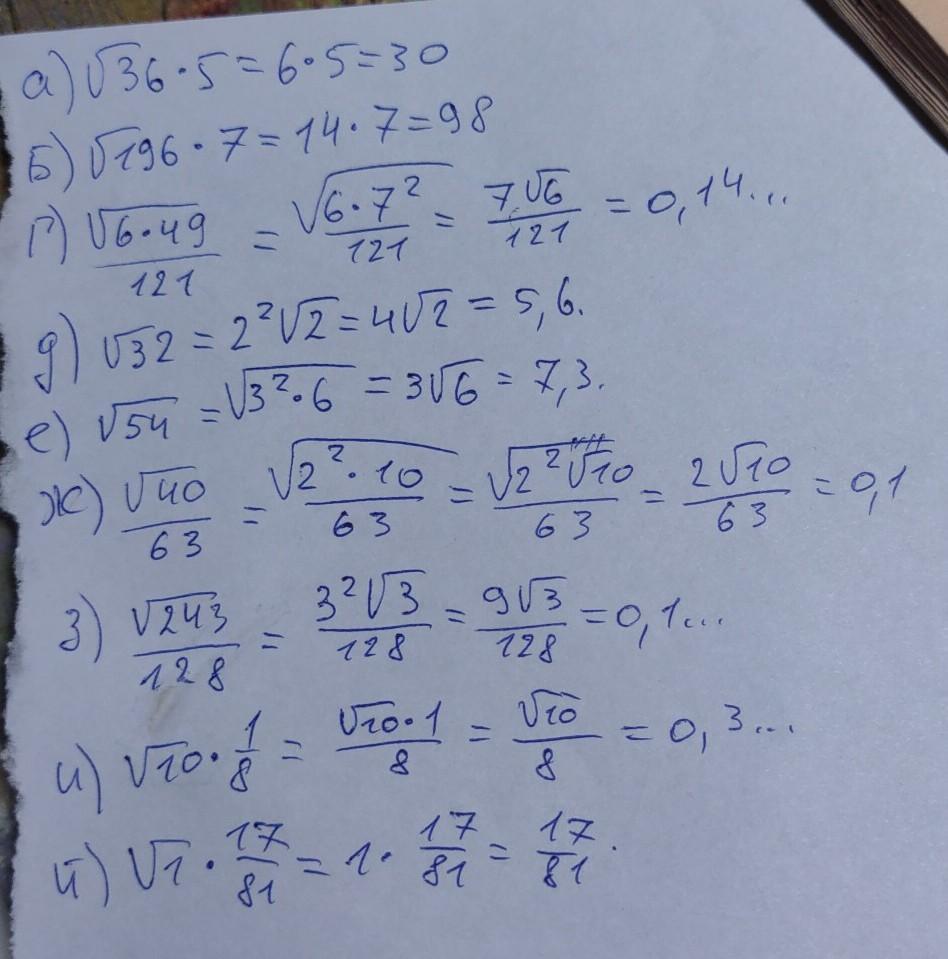 а) √36·5=6·5=30
Б) √196·7=14·7=98
Г) √6·49/121 = √6·7²/121 = 7√6/121 = 0,14...
д) √32=2²√2=4√2=5,6.
е) √54=√3²·6=3√6=7,3.
ж) √40/63 = √2²·10/63 = √2²√10/63 = 2√10/63 = 0,1
З) √243/128 = 3²√3/128 = 9√3/128 =0,1...
и) √10·1/8 = √10·1/8 = √10/8 = 0,3...
й) √1·17/81 = 1·17/81 = 17/81.